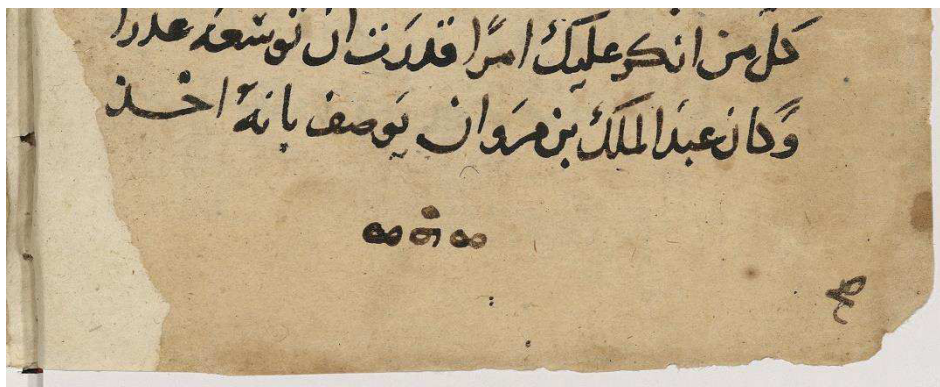 كل من انكر عليك امرًا قدرت ان توسعه عذرا
وكان عبد الملك بن مروان يوصف بانه اخذ